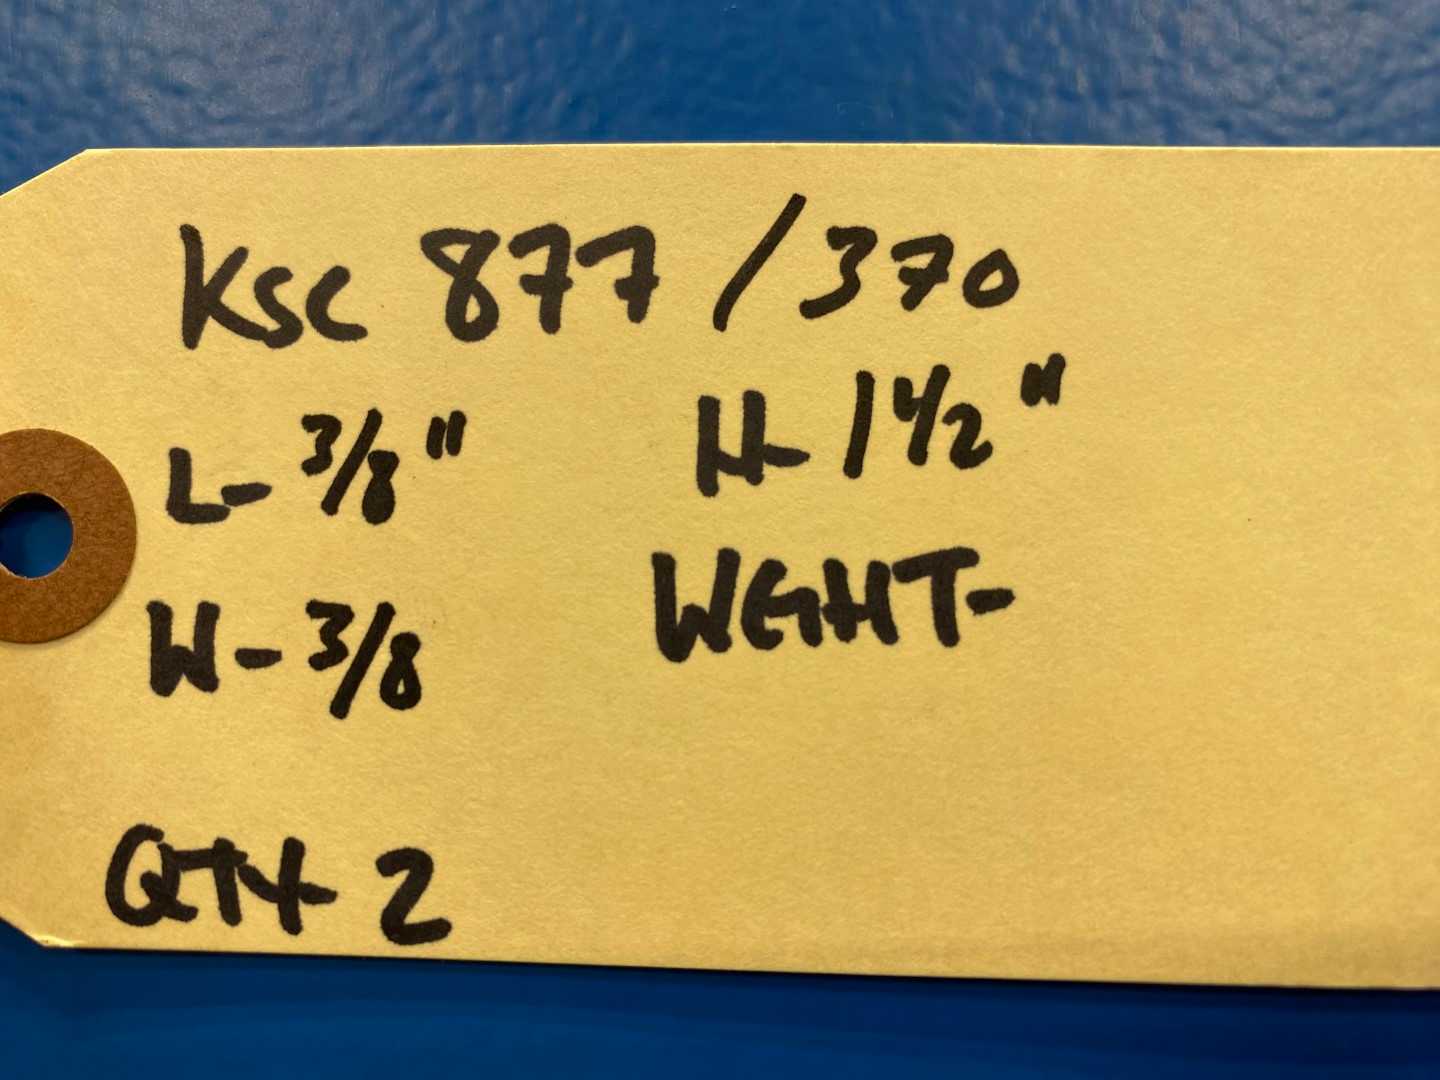 KSC 877 / 370
L- 3/8" H- 1 1/2"
W- 3/8 WGHT-
QTY- 2